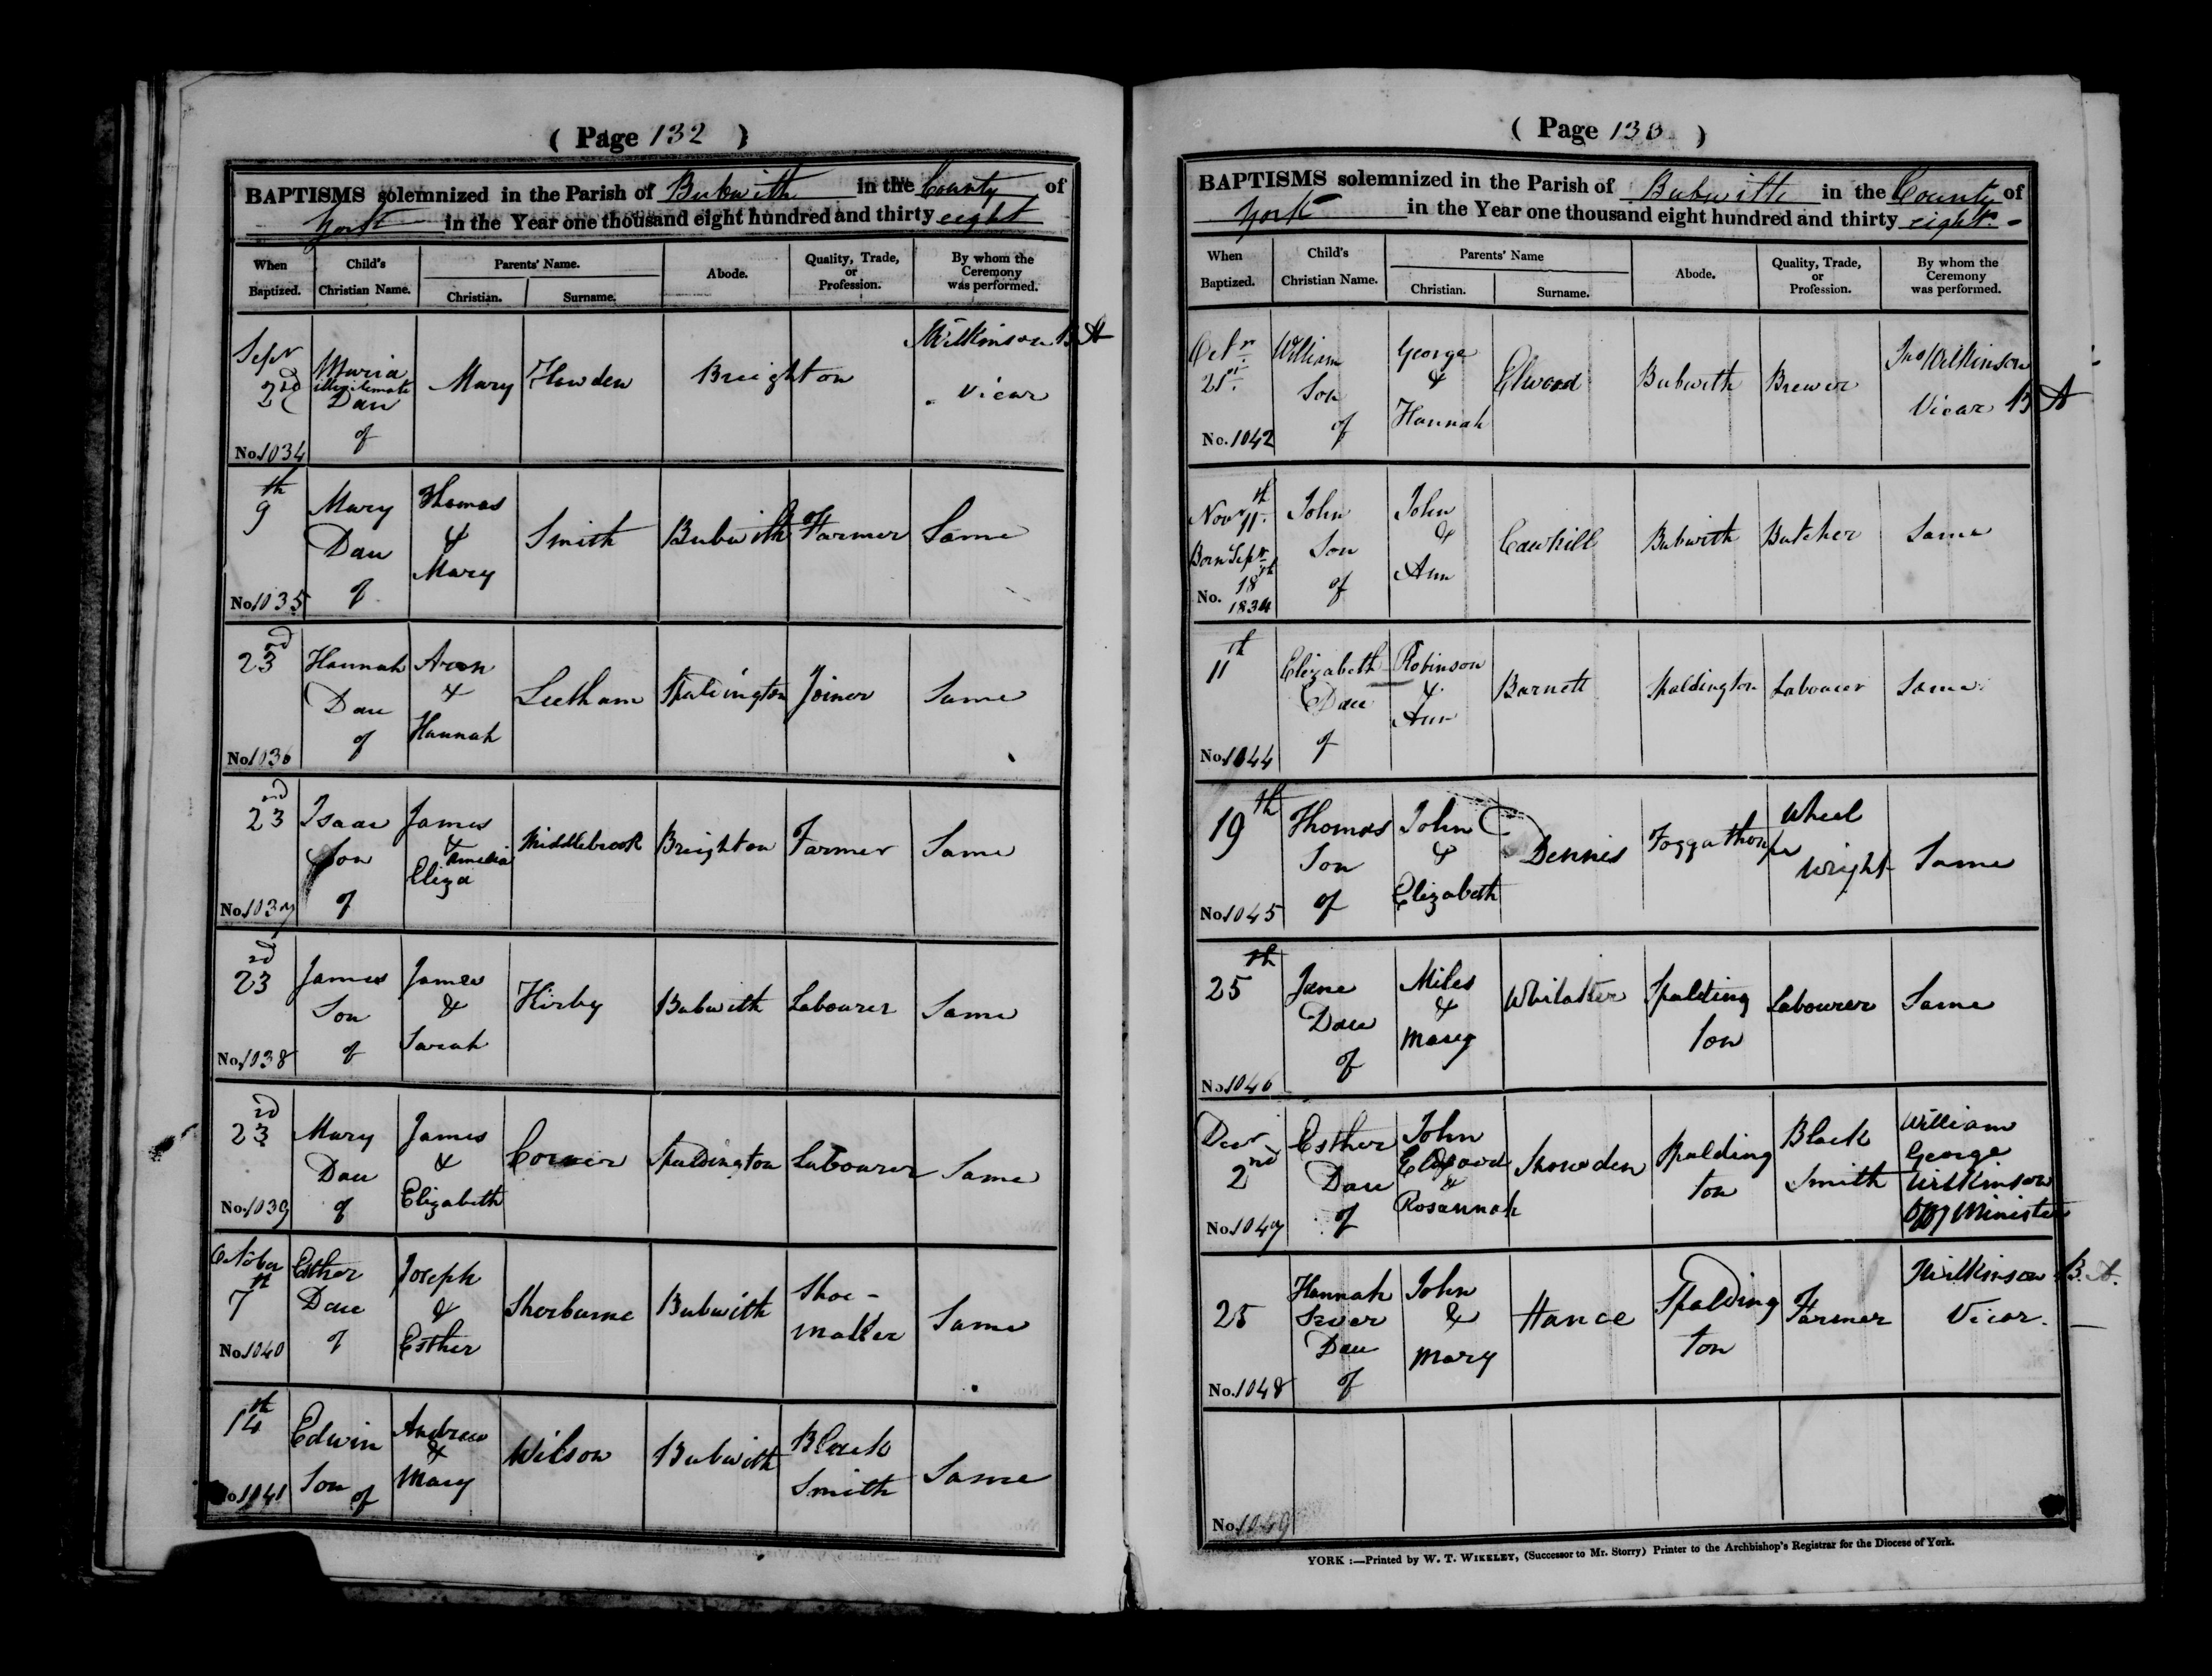 ( Page 132 )
BAPTISMS solemnized in the Parish of Bubwith in the County of
York in the Year one thousand eight hundred and thirty eight
When Baptized. Child's Christian Name. Parents' Name. Christian. Surname. Abode. Quality, Trade, or Profession. By whom the Ceremony was performed.
Sepr 2nd Maria illegitimate Dau of Mary Howden Breighton Wilkinson BA Vicar
No. 1034
9th Mary Dau of Thomas & Mary Smith Bubwith Farmer Same
No. 1035
23rd Hannah Dau of Aron & Hannah Leetham Spaldington Joiner Same
No. 1036
23rd Isaac Son of James & Amelia Eliza Middlebrook Breighton Farmer Same
No. 1037
23rd James Son of James & Sarah Kirby Bubwith Labourer Same
No. 1038
23rd Mary Dau of James & Elizabeth Corner Spaldington Labourer Same
No. 1039
October 7th Esther Dau of Joseph & Esther Sherburne Bubwith Shoe-maker Same
No. 1040
14th Edwin Son of Andrew & Mary Wilson Bubwith Black Smith Same
No. 1041
( Page 133 )
BAPTISMS solemnized in the Parish of Bubwith in the County of
York in the Year one thousand eight hundred and thirty eight
When Baptized. Child's Christian Name. Parents' Name Christian. Surname. Abode. Quality, Trade, or Profession. By whom the Ceremony was performed.
Octr 21st William Son of George & Hannah Elwood Bubwith Brewer Jno Wilkinson Vicar BA
No. 1042
Novr 11th Born Sepr 18th 1834 John Son of John & Ann Cawkill Bubwith Butcher Same
No.
11th Elizabeth Dau of Robinson & Ann Barnett Spaldington Labourer Same
No. 1044
19th Thomas Son of John & Elizabeth Dennis Foggathorpe Wheel Wright Same
No. 1045
25th Jane Dau of Miles & Mary Spaldington Labourer Same
No. 1046
Decr 2nd Esther Dau of John & Rosannah Snowden Spaldington Black Smith William George Wilkinson Minister
No. 1047
25 Hannah Dau of John & Mary Hance Spaldington Farmer Wilkinson B.A. Vicar.
No. 1048
No. 1049
YORK :—Printed by W. T. WIKELEY, (Successor to Mr. Storry) Printer to the Archbishop's Registrar for the Diocese of York.